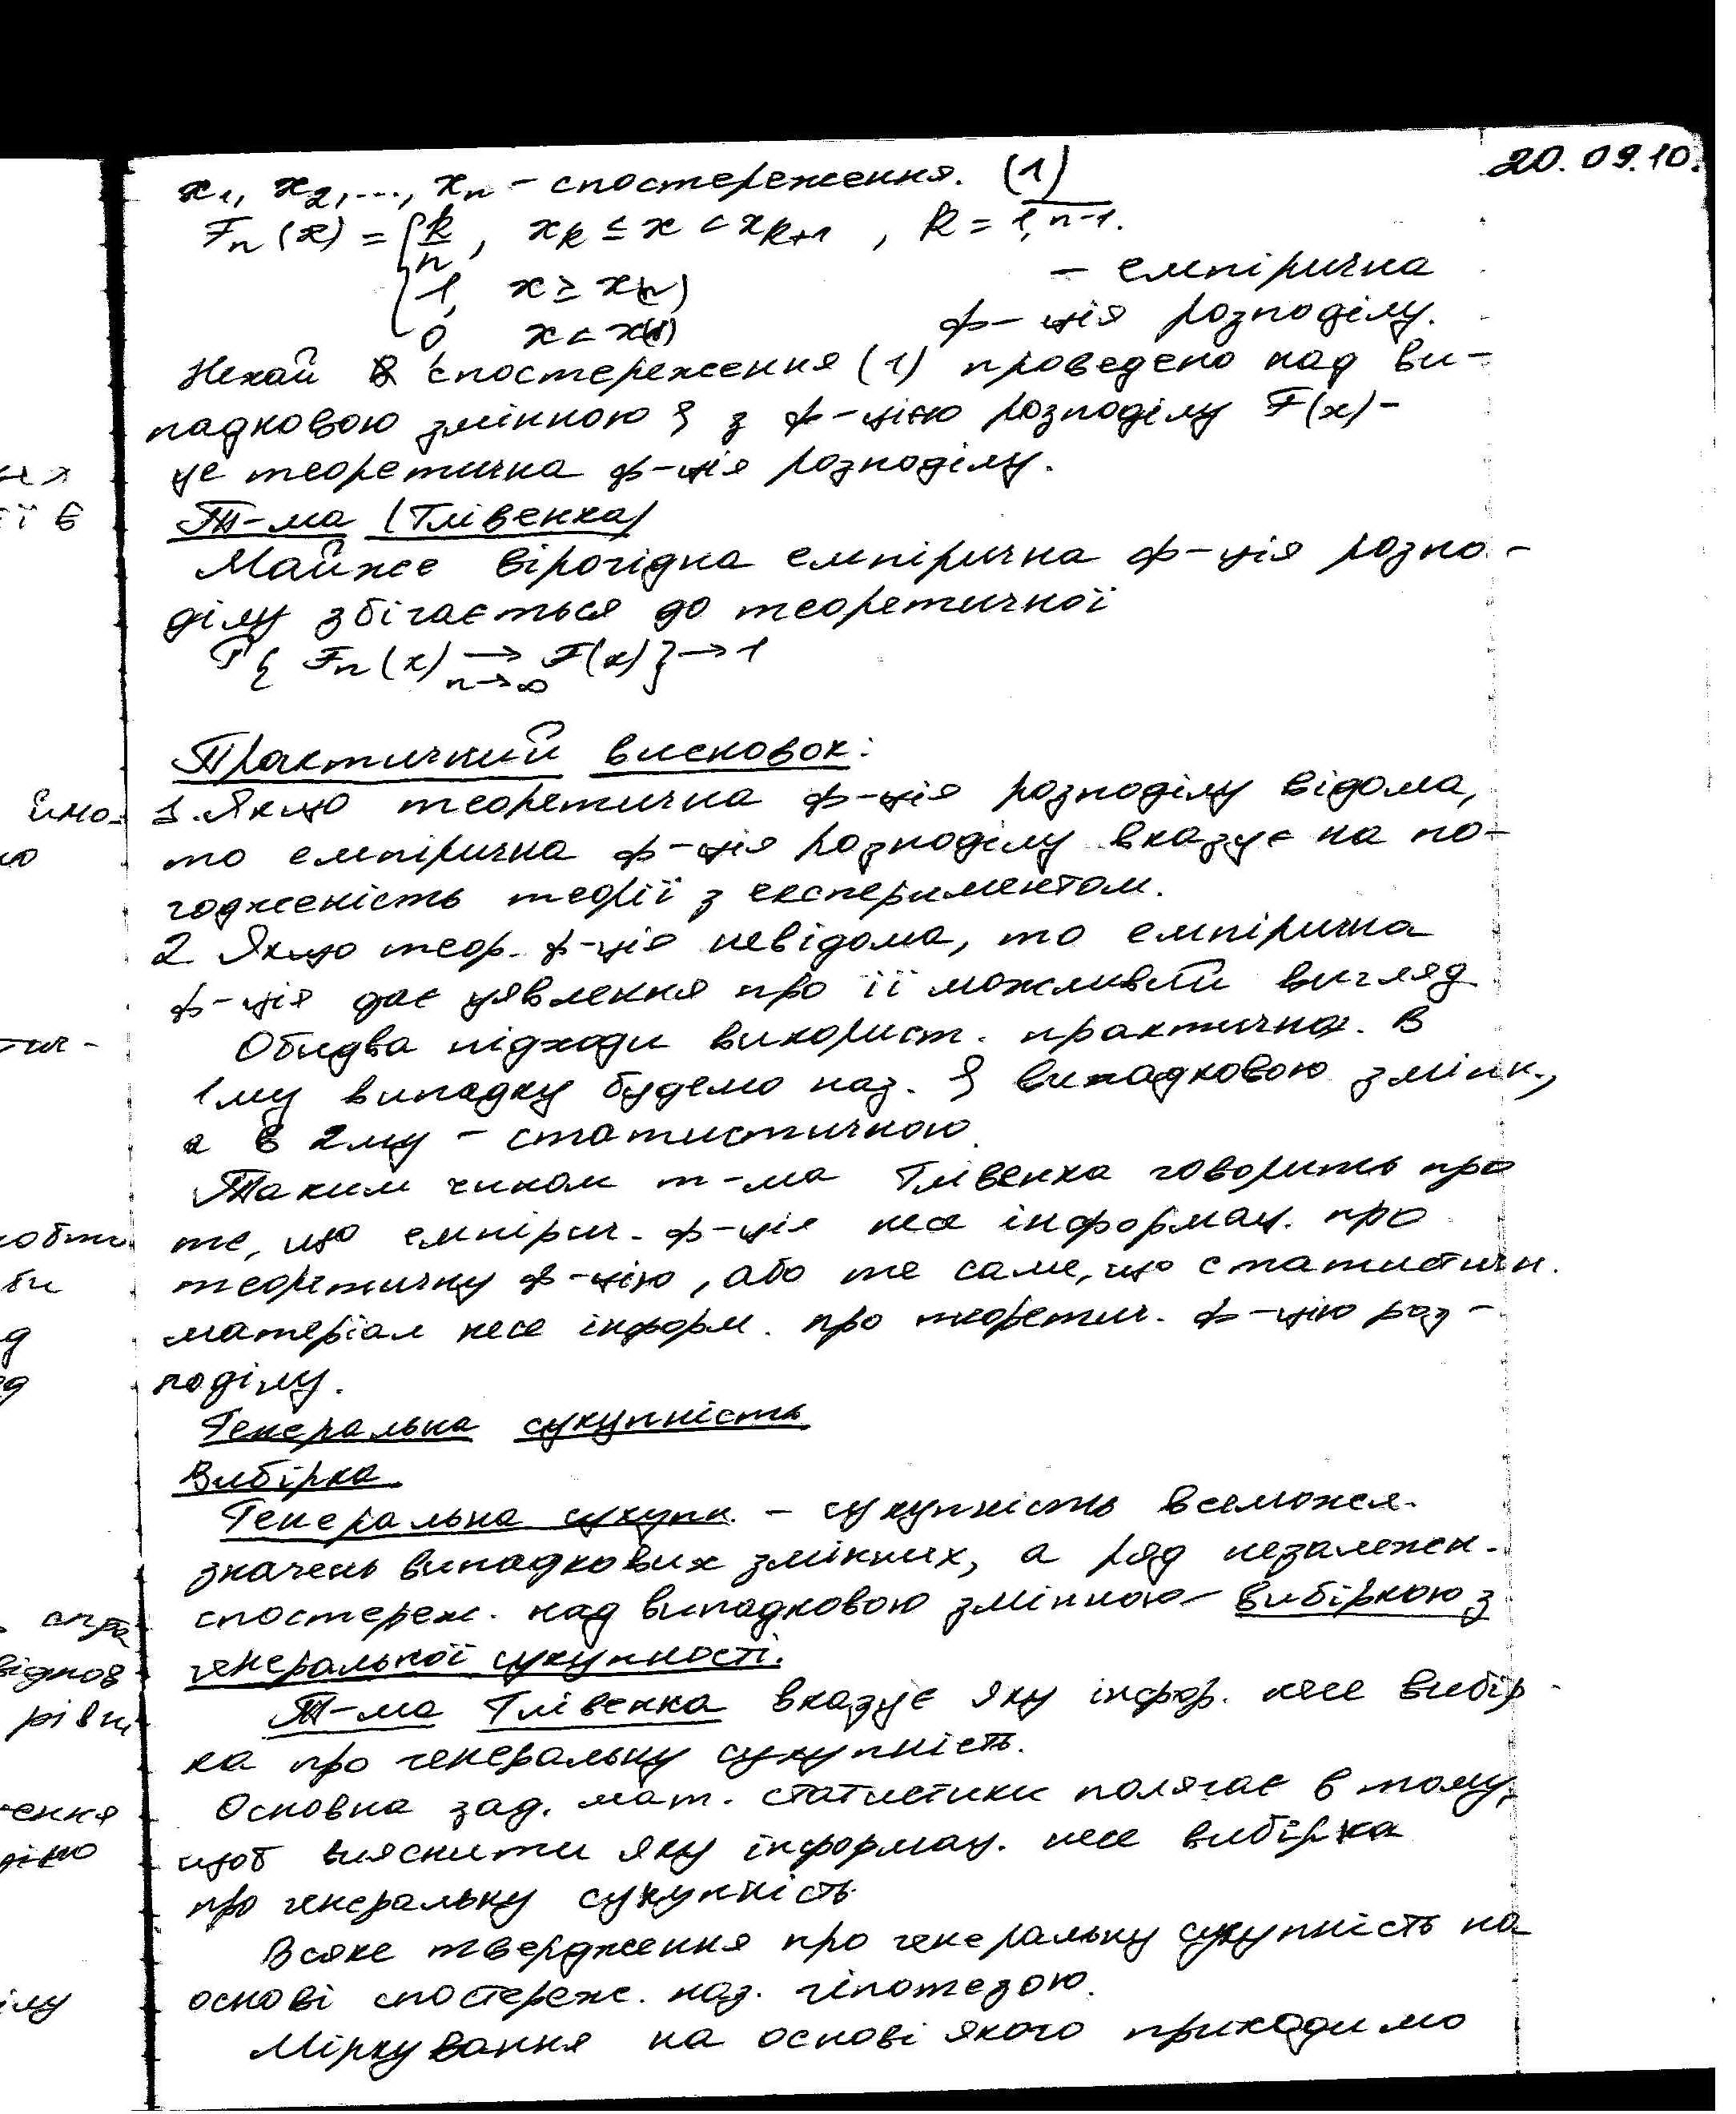 20.09.10.
x₁, x₂, ..., xₙ – спостереження. (1)
Fₙ(x) = { k/n, x_k ≤ x < x_{k+1}, k = 1, n-1.
1, x ≥ x(n)
– емпірична
0 x < x(1)
ф-ція розподілу.
Нехай спостереження (1) проведено над ви-
падковою змінною ξ з ф-цією розподілу F(x) –
це теоретична ф-ція розподілу.
Т-ма (Глівенка)
Майже вірогідна емпірична ф-ція розпо-
ділу збігається до теоретичної
P{ Fₙ(x) → F(x) } → 1
n→∞
Практичний висновок:
1. Якщо теоретична ф-ція розподілу відома,
то емпірична ф-ція розподілу вказує на по-
годженість теорії з експериментом.
2 Якщо теор. ф-ція невідома, то емпірична
ф-ція дає уявлення про її можливий вигляд
Обидва підходи використ. практично. В
1му випадку будемо наз. ξ випадковою змінн.,
а в 2му – статистичною.
Таким чином т-ма Глівенка говорить про
те, що емпірич. ф-ція несе інформац. про
теоретичну ф-цію, або те саме, що статистичн.
матеріал несе інформ. про теоретич. ф-цію роз-
поділу.
Генеральна сукупність
Вибірка
Генеральна сукупн. – сукупність всеможл.
значень випадкових змінних, а ряд незалежн.
спостереж. над випадковою змінною – вибіркою з
генеральної сукупності.
Т-ма Глівенка вказує яку інфор. несе вибір-
ка про генеральну сукупність.
Основна зад. мат. статистики полягає в тому,
щоб вияснити яку інформац. несе вибірка
про генеральну сукупність
Всяке твердження про генеральну сукупність на
основі спостереж. наз. гіпотезою.
Міркування на основі якого приходимо